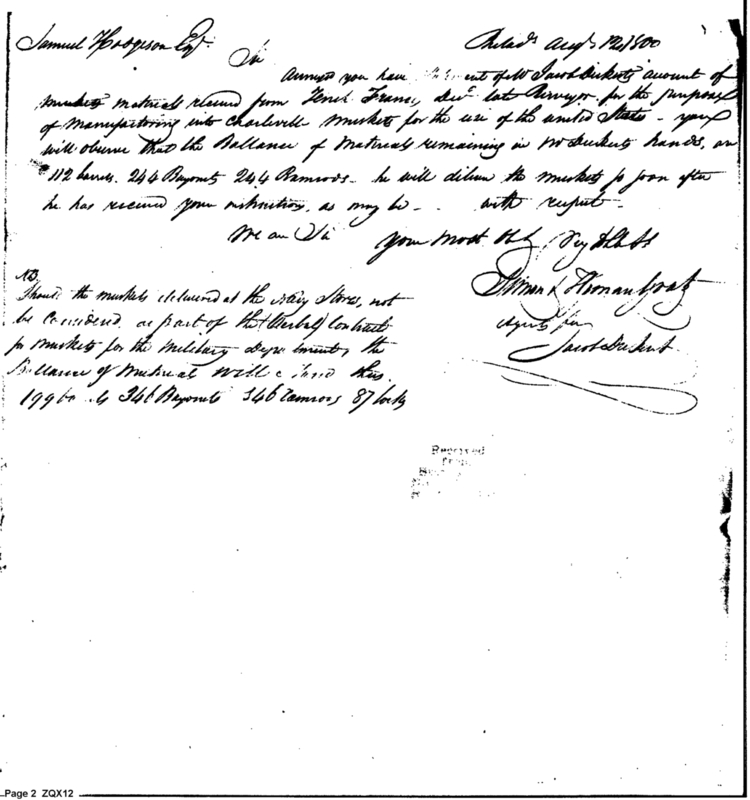 Samuel Hodgson Esqr. Philada. Augt. 12, 1800
Sir
Annexed you have of Mr. Jacob Dickerts account of
muskets materials received from Tench Francis, Decd. late Purveyor for the purpose
of Manufactoring into Charlevill muskets for the use of the united States - you
will observe that the Ballance of Materials remaining in Mr Dickerts hands, are
112 barrels. 244 Bayonets 244 Ramrods - he will deliver the muskets so soon after
he has received your instructions, as may be - with respect -
We are Sir your most Obt
Simon & Hyman Gratz
Agents for
Jacob Dickert
NB
Should the muskets delivered at the Navy Stores, not
be Considered as part of the (Verbal) Contract
for muskets for the Military Department, the
Ballance of Material will stand thus.
199 346 Bayonets 346 Ramrods 87 locks
Received
from
Page 2 ZQX12